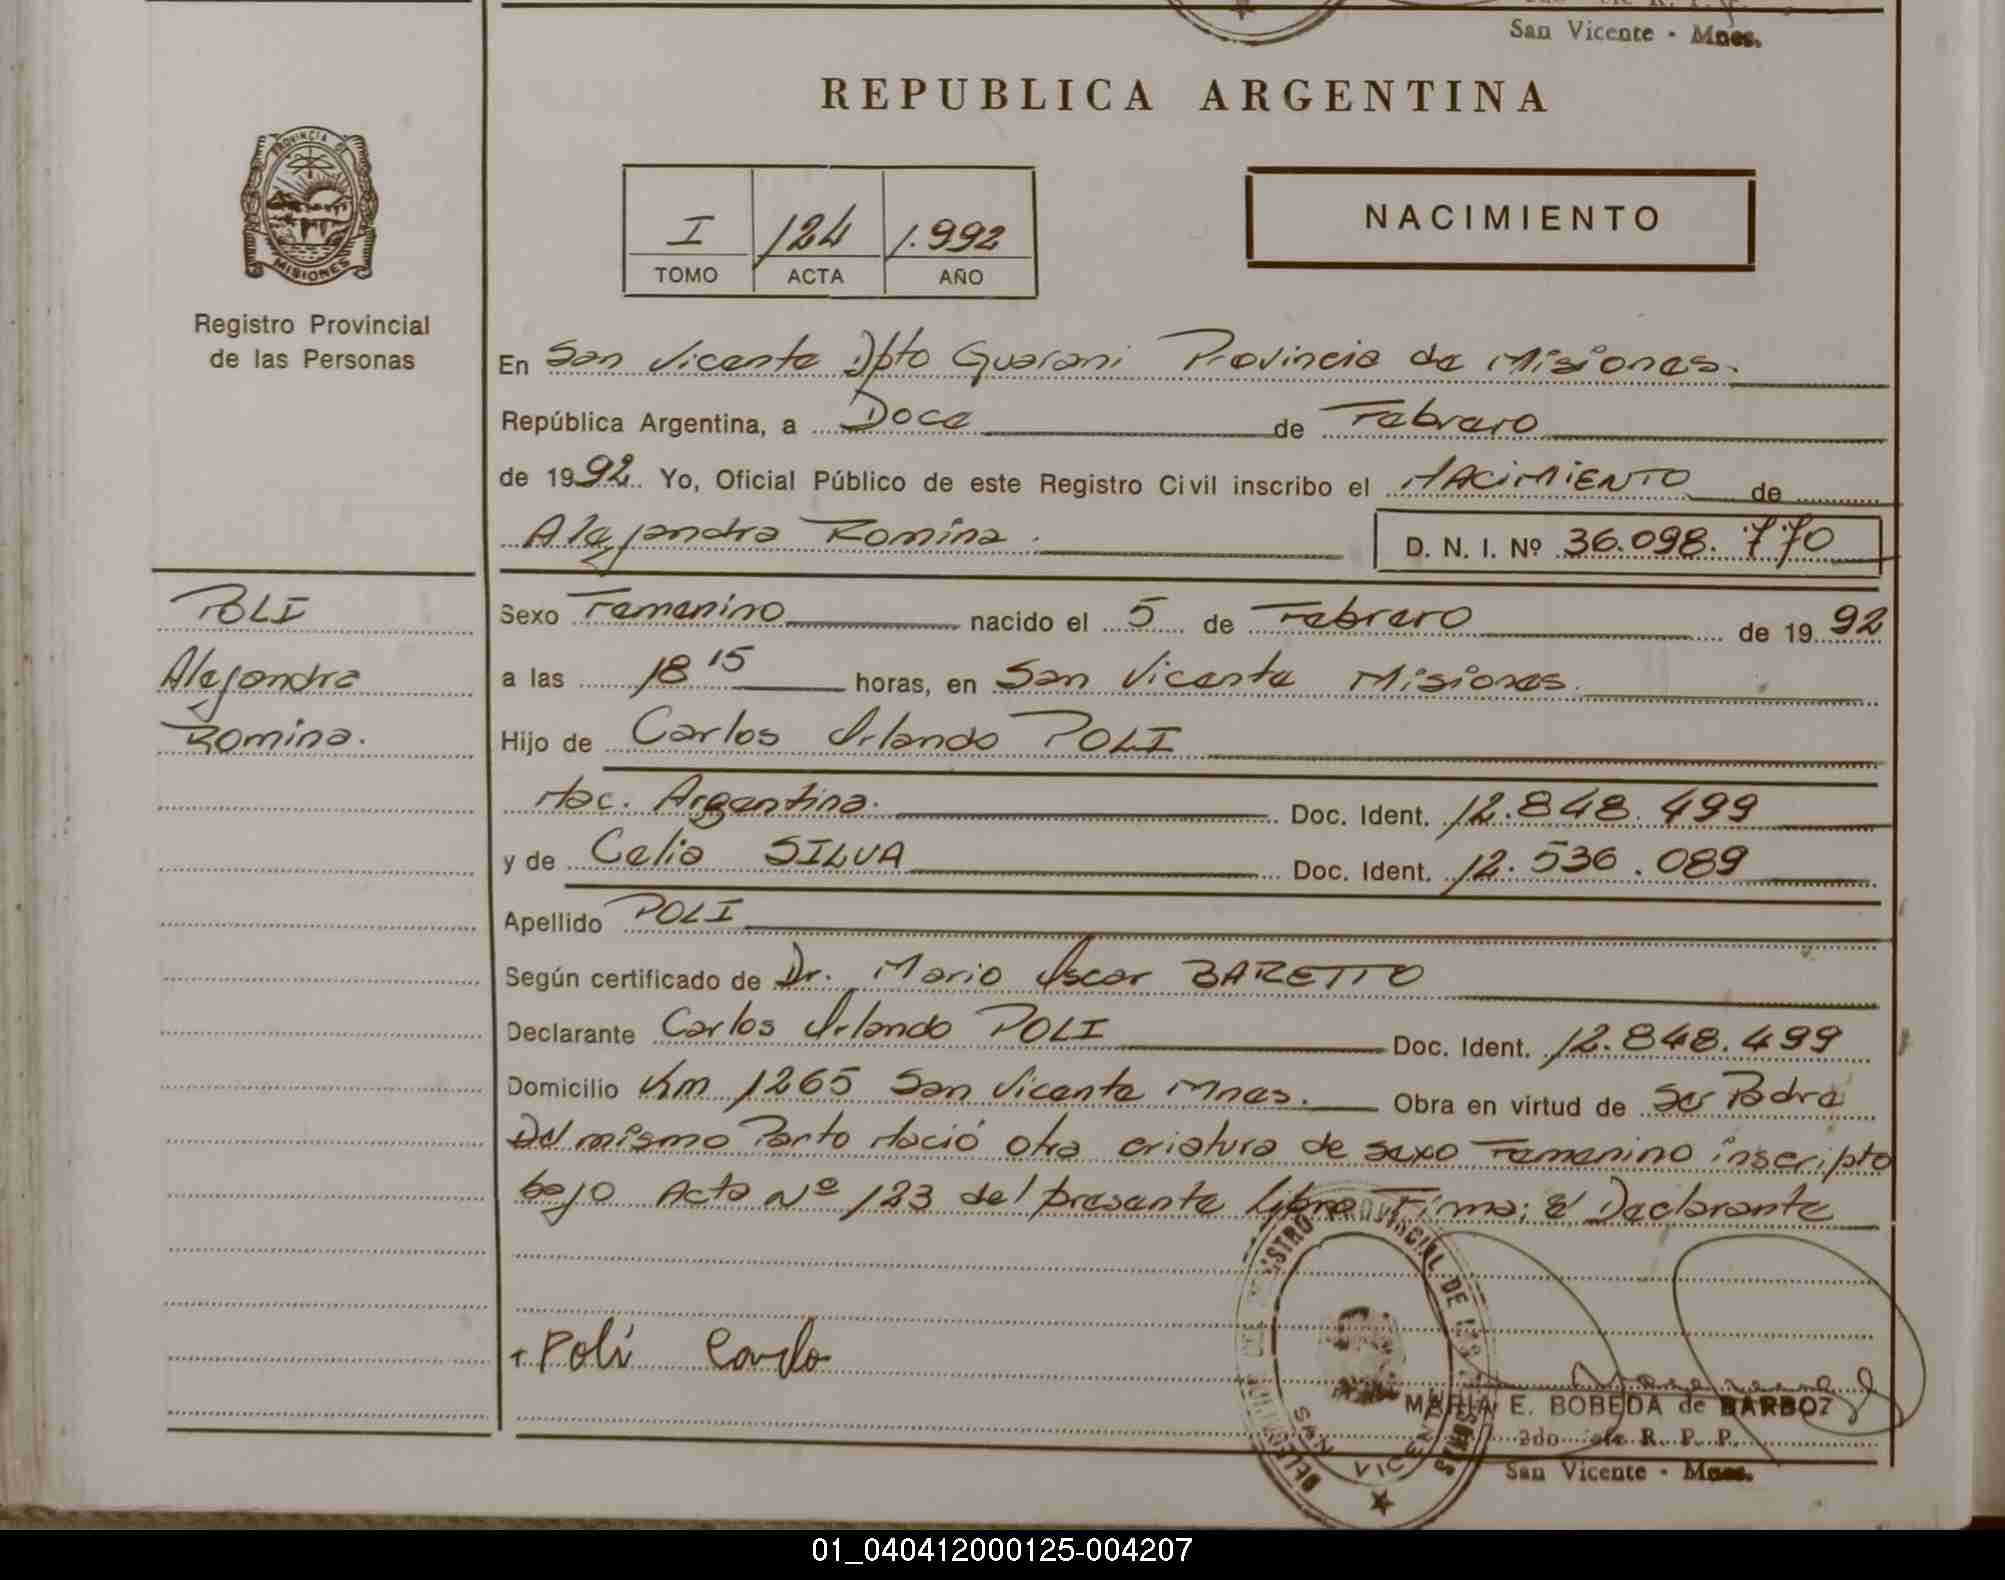 San Vicente - Mnes.
REPUBLICA ARGENTINA
PROVINCIA DE
MISIONES
Registro Provincial
de las Personas
I 124 1.992
TOMO ACTA AÑO
NACIMIENTO
En San Vicente Dpto Guarani Provincia de Misiones.
República Argentina, a Doce de Febrero
de 1992. Yo, Oficial Público de este Registro Civil inscribo el NACIMIENTO de
Alejandra Romina. D. N. I. Nº 36.098.770
POLI
Alejandra
Romina.
Sexo Femenino nacido el 5 de Febrero de 1992
a las 18 15 horas, en San Vicente Misiones.
Hijo de Carlos Orlando POLI
Nac. Argentina. Doc. Ident. 12.848.499
y de Celia SILVA Doc. Ident. 12.536.089
Apellido POLI
Según certificado de Dr. Mario Oscar BARETTO
Declarante Carlos Orlando POLI Doc. Ident. 12.848.499
Domicilio Km 1265 San Vicente Mnes. Obra en virtud de Ser Padre
Del mismo Parto Nació otra criatura de sexo Femenino inscripto
bajo Acta Nº 123 del presente libro Firma: el Declarante
Poli Carlo
REGISTRO PROVINCIAL DE LAS PERSONAS
SAN VICENTE
MARIA E. BOBEDA de BARBOZ
2do R. P. P.
San Vicente - Mnes.
01_040412000125-004207